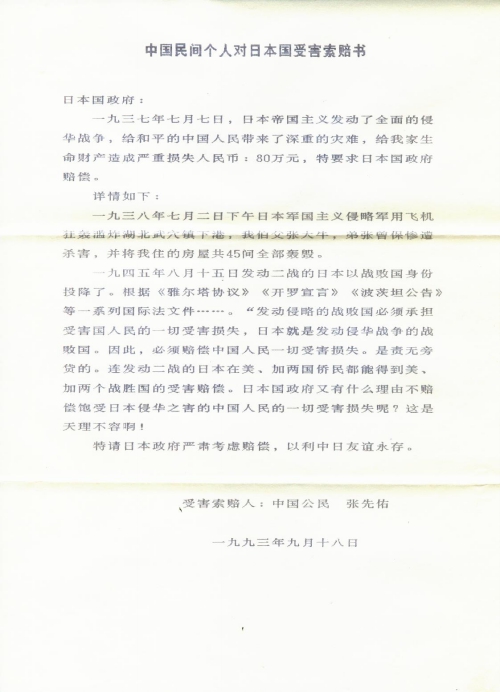 中国民间个人对日本国受害索赔书
日本国政府：
一九三七年七月七日，日本帝国主义发动了全面的侵
华战争，给和平的中国人民带来了深重的灾难，给我家生
命财产造成严重损失人民币：80万元，特要求日本国政府
赔偿。
详情如下：
一九三八年七月二日下午日本军国主义侵略军用飞机
狂轰滥炸湖北武穴镇下港，我伯父张大牛，弟张曾保惨遭
杀害，并将我住的房屋共45间全部轰毁。
一九四五年八月十五日发动二战的日本以战败国身份
投降了。根据《雅尔塔协议》《开罗宣言》《波茨坦公告》
等一系列国际法文件……。“发动侵略的战败国必须承担
受害国人民的一切受害损失，日本就是发动侵华战争的战
败国。因此，必须赔偿中国人民一切受害损失。是责无旁
贷的。连发动二战的日本在美、加两国侨民都能得到美、
加两个战胜国的受害赔偿。日本国政府又有什么理由不赔
偿饱受日本侵华之害的中国人民的一切受害损失呢？这是
天理不容啊！
特请日本政府严肃考虑赔偿，以利中日友谊永存。
受害索赔人：中国公民 张先佑
一九九三年九月十八日